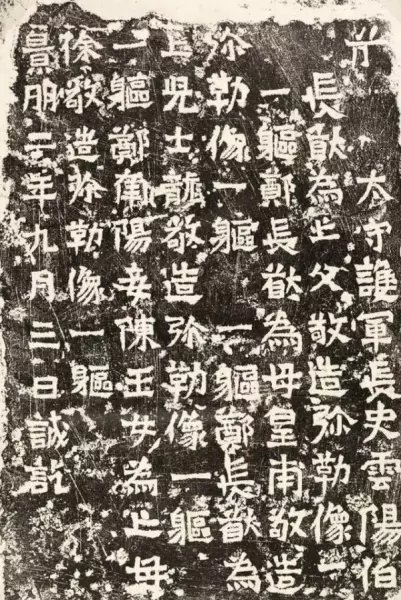 太守護軍長史雲陽伯
長猷為亡父敬造弥勒像一
一軀鄭長猷為母皇甫敬造
弥勒像一軀 一軀鄭長猷為
亡兒士龍敬造弥勒像一軀
一軀鄭南陽妾陳玉女為亡母
徐敬造弥勒像一軀
景明二年九月三日誠訖